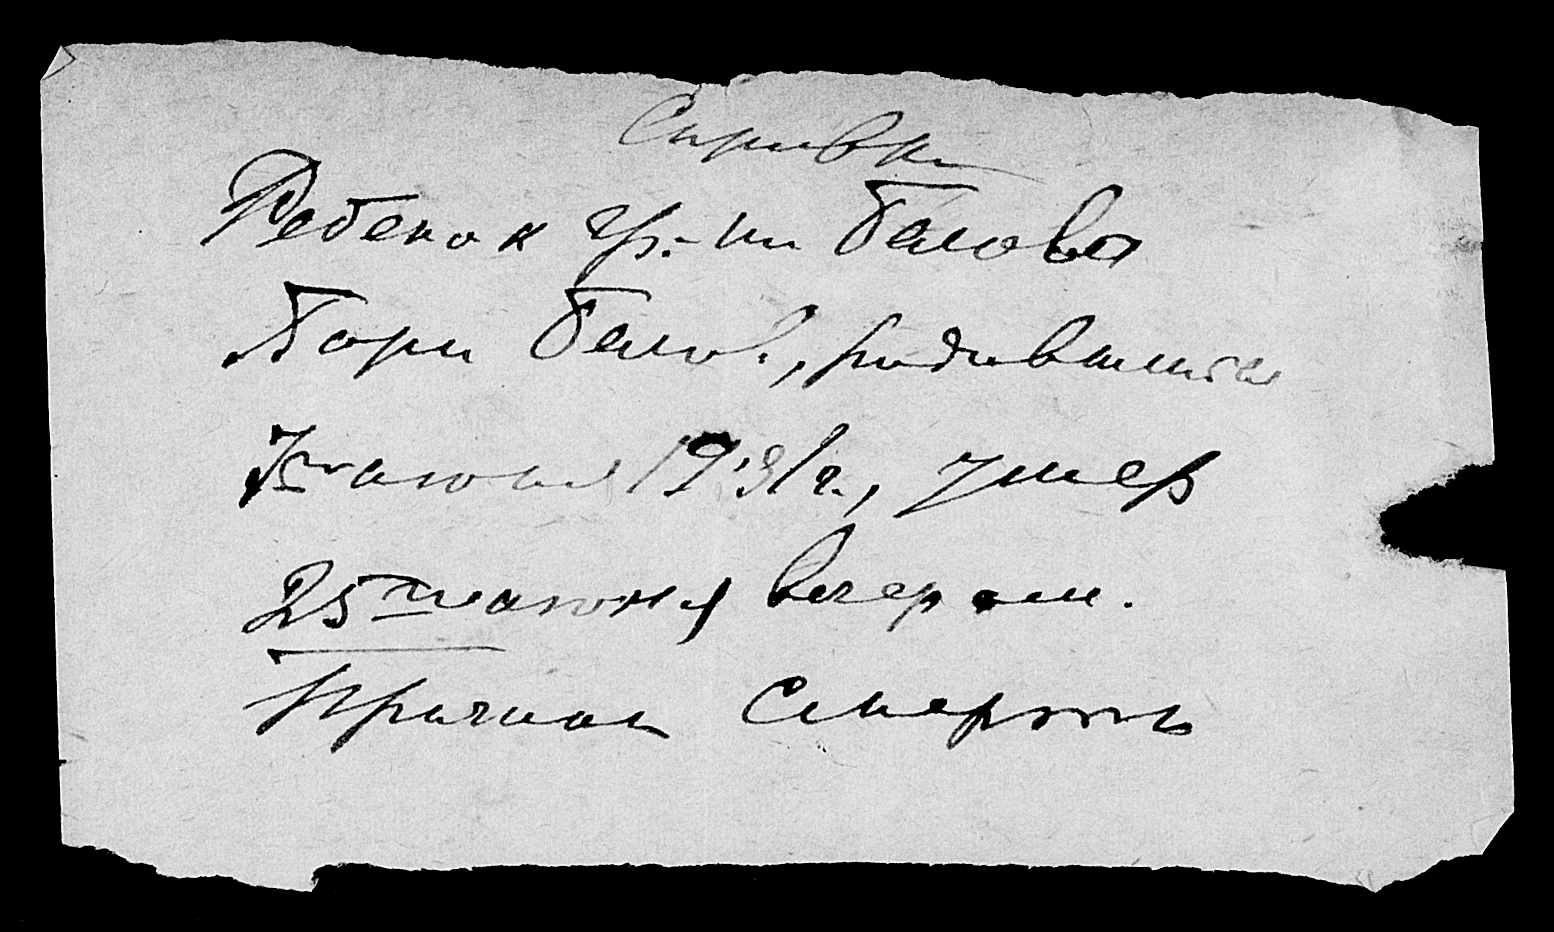 Справка
Ребенок гр-ки Беловой
Бори Белов, родившийся
7го июня 1931г., умер
25го июня вечером.
Причина смерть